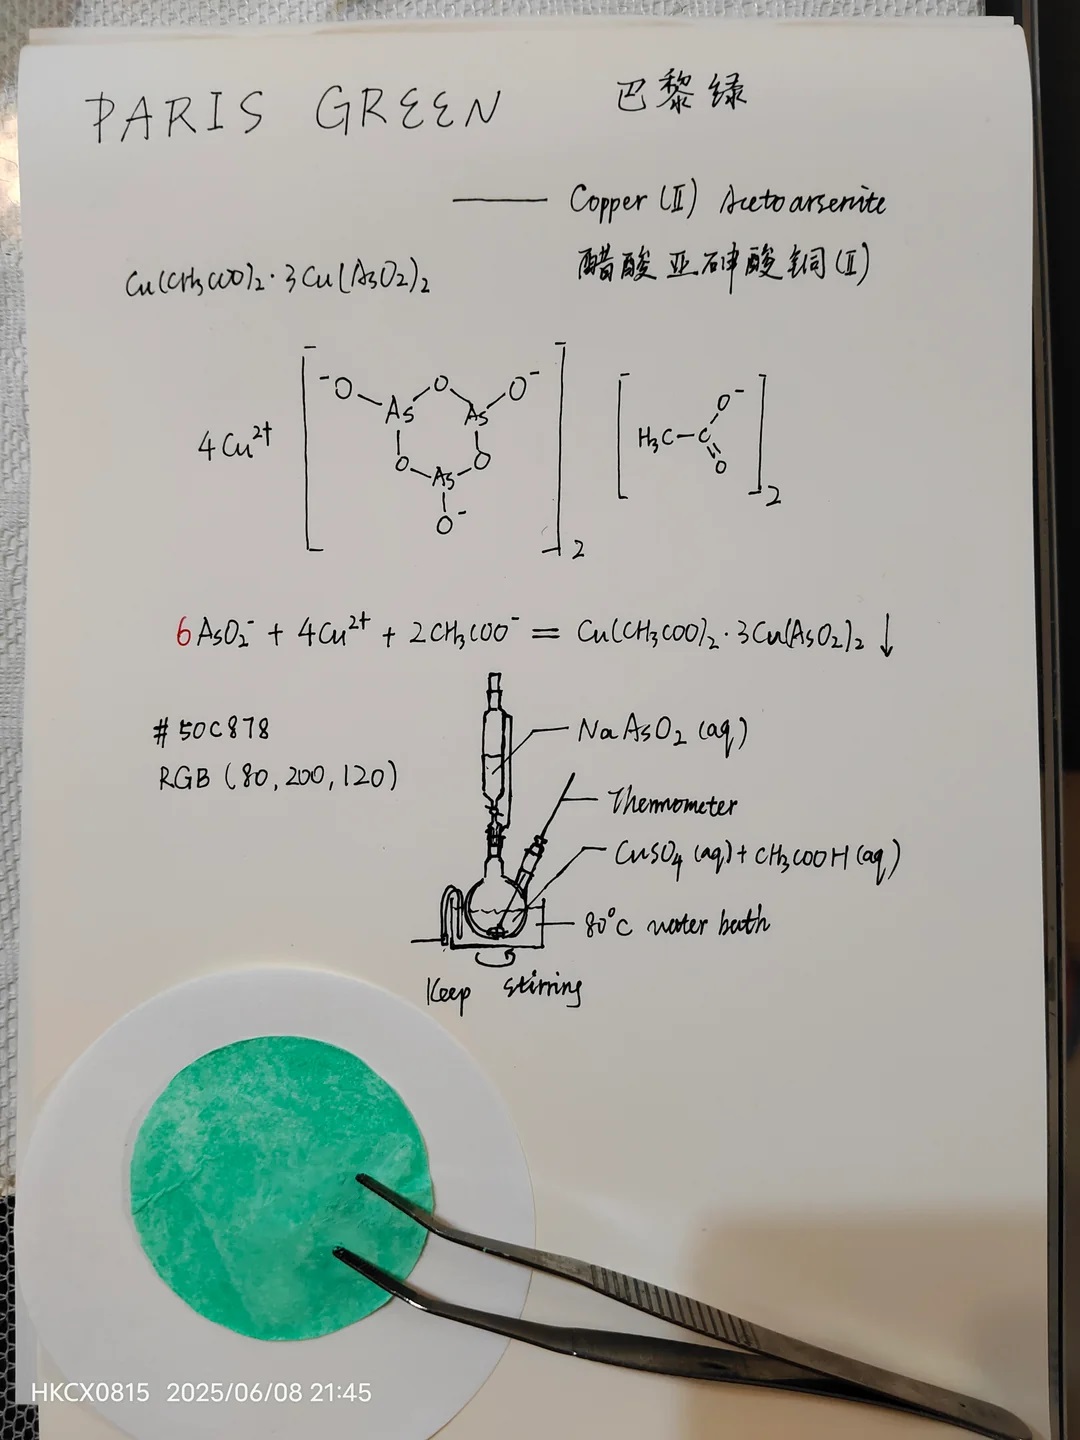 PARIS GREEN 巴黎绿
—— Copper (II) Acetoarsenite
醋酸亚砷酸铜(II)
Cu(CH3COO)2·3Cu(AsO2)2
4Cu²⁺ [⁻O As O As O⁻ O As O O⁻]2 [H3C-C O⁻ O]2
6AsO2⁻ + 4Cu²⁺ + 2CH3COO⁻ = Cu(CH3COO)2·3Cu(AsO2)2↓
#50C878
RGB (80,200,120)
NaAsO2 (aq)
Thermometer
CuSO4 (aq) + CH3COOH (aq)
80°C water bath
Keep stirring
HKCX0815 2025/06/08 21:45